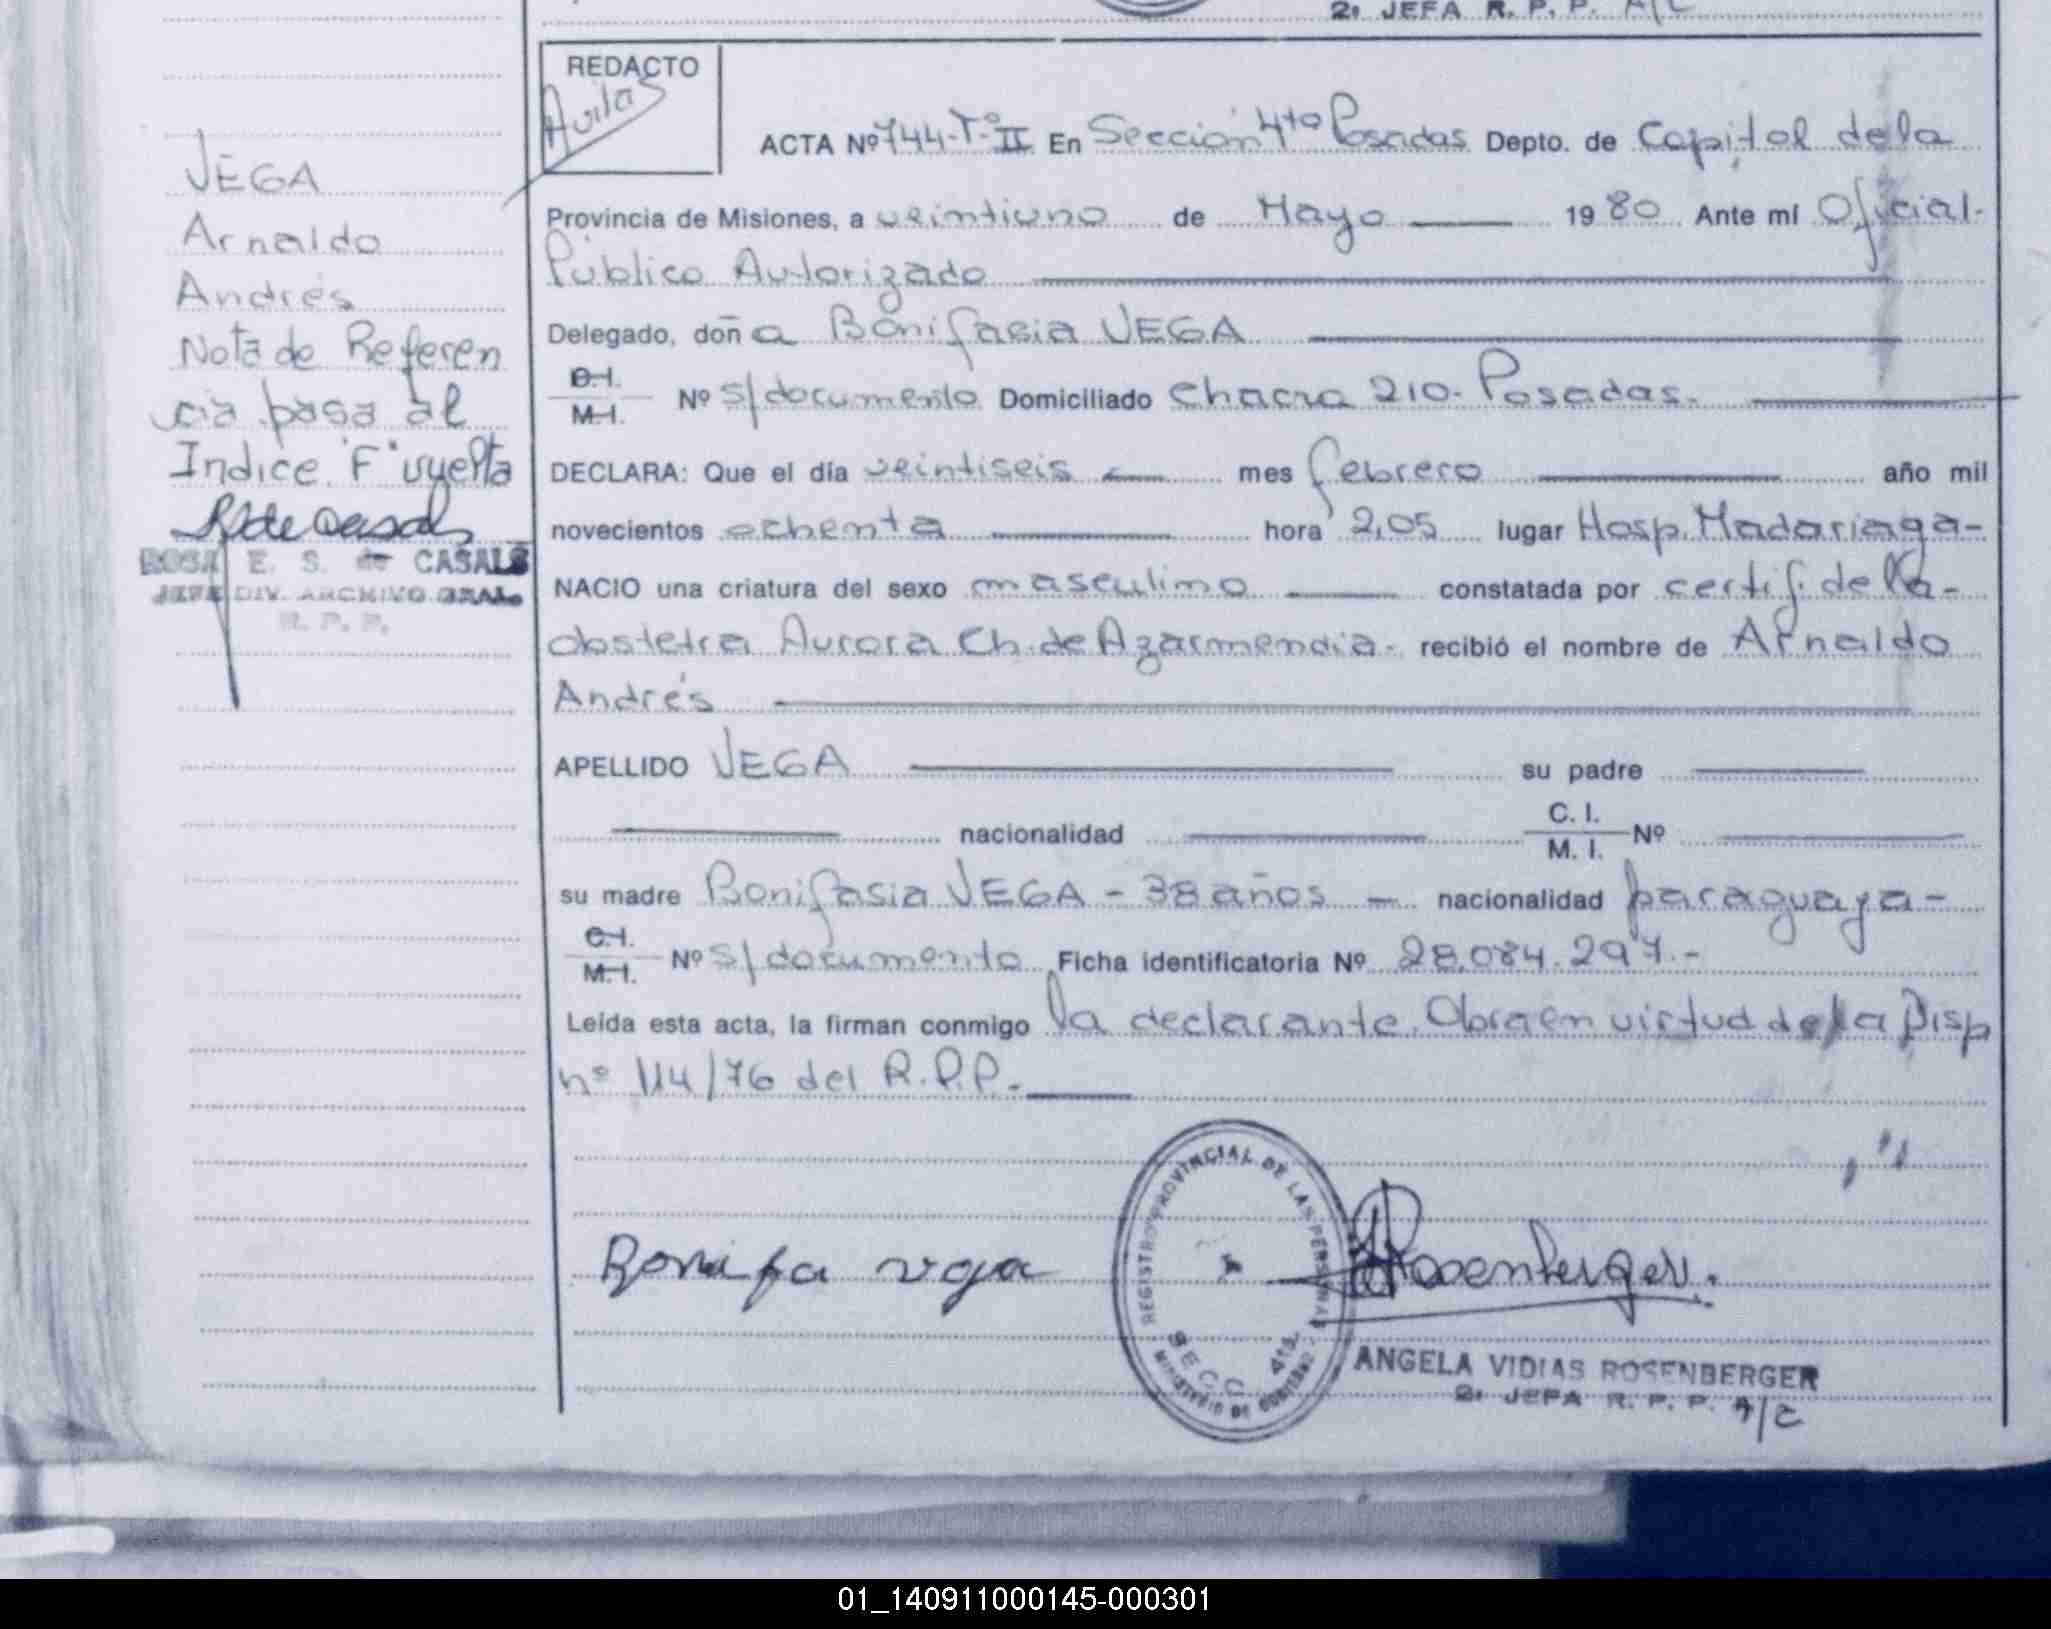 2º JEFA R. P. P. A/C
REDACTO
Avilas
ACTA Nº 744-Tº-II En Sección 4ta Posadas Depto. de Capital de la
Provincia de Misiones, a veintiuno de Mayo 1980 Ante mí Oficial
Público Autorizado
Delegado, doña Bonifasia VEGA
D.I.
M.I. Nº s/documento Domiciliado Chacra 210- Posadas.
DECLARA: Que el día veintiseis mes febrero año mil
novecientos ochenta hora 2,05 lugar Hosp. Madariaga-
NACIO una criatura del sexo masculino constatada por certif. de la
obstetra Aurora Ch. de Azarmendia- recibió el nombre de Arnaldo
Andrés
APELLIDO VEGA su padre
nacionalidad C. I.
M. I. Nº
su madre Bonifasia VEGA - 38 años - nacionalidad paraguaya-
C.I.
M.I. Nº s/documento Ficha identificatoria Nº 28.084.297.-
Leída esta acta, la firman conmigo la declarante. Obra en virtud de la Disp
nº 114/76 del R.P.P.-
Bonifa vega
Rosenberger.
REGISTRO PROVINCIAL DE LAS PERSONAS
SECC 4ta.
MINISTERIO DE GOBIERNO
ANGELA VIDIAS ROSENBERGER
2º JEFA R. P. P. A/C
VEGA
Arnaldo
Andrés
Nota de Referen
cia pasa al
Indice "F" vuelta
R de Casals
ROSA E. S. de CASALS
JEFE DIV. ARCHIVO GRAL.
R. P. P.
01_140911000145-000301